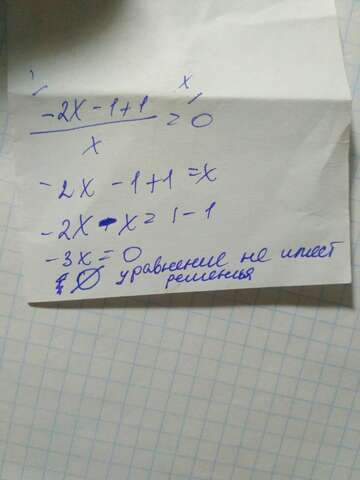 x
-2x-1+1 = 0
x
-2x -1+1 =x
-2x - x = 1-1
-3x = 0
∅ уравнение не имеет
решенья